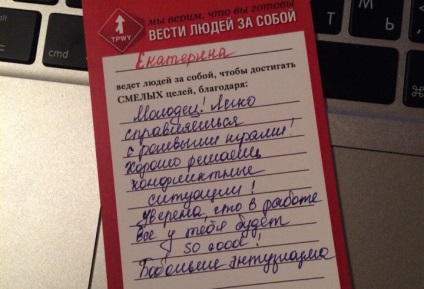 мы верим, что вы готовы
ВЕСТИ ЛЮДЕЙ ЗА СОБОЙ
TPWY
Екатерина
ведет людей за собой, чтобы достигать
СМЕЛЫХ целей, благодаря:
Молодец! Легко
справляешься
с ролевыми играми!
Хорошо решаешь
конфликтные
ситуации!
Уверена, что в работе
всё у тебя будет
so good!
Побольше энтузиазма